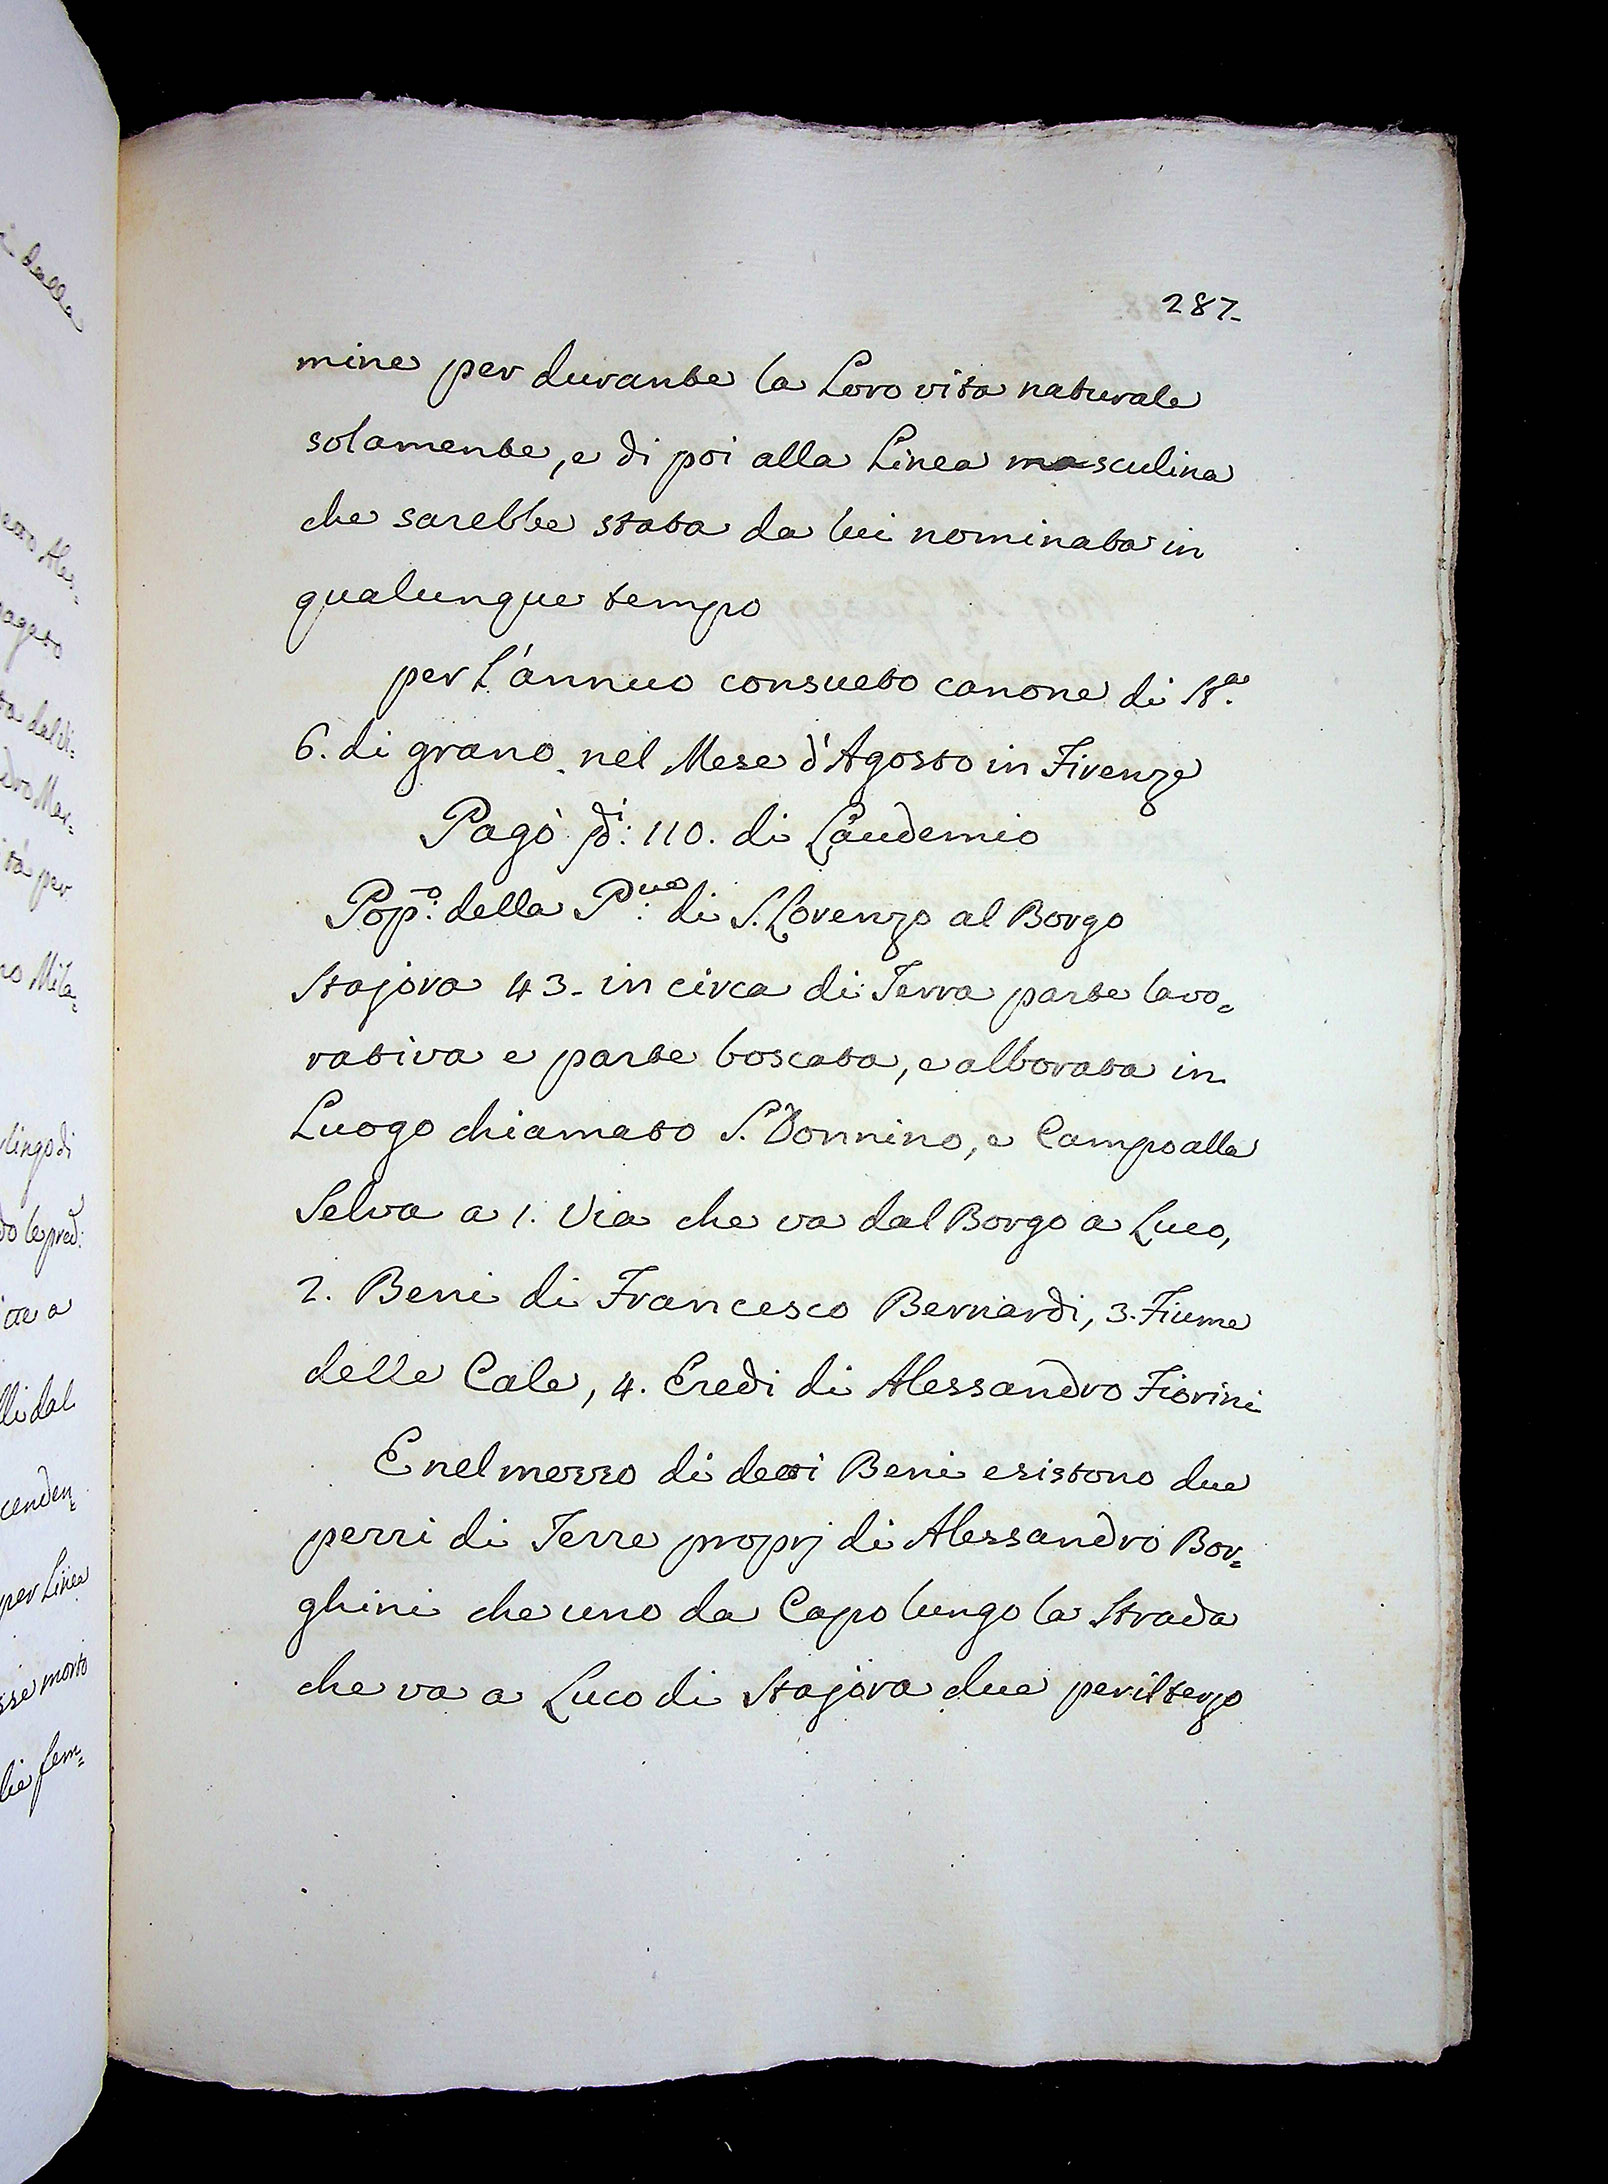 287-
mine per durante la Loro vita naturale
solamente, e di poi alla Linea masculina
che sarebbe stata da lui nominata in
qualunque tempo
per L'annuo consueto canone di St.a
6. di grano nel Mese d'Agosto in Firenze
Pagò 110. di Laudemio
Pop.o della P.ve di S. Lorenzo al Borgo
Stajora 43- in circa di Terra parte lavo=
rativa e parte boscata, e alborata in
Luogo chiamato S. Donnino, e Campo alla
Selva a 1. Via che va dal Borgo a Luco,
2. Beni di Francesco Bernardi, 3. Fiume
delle Cale, 4. Eredi di Alessandro Fiorini
E nel mezzo di detti Beni esistono due
pezzi di Terre proprj di Alessandro Bor=
ghini che uno da Capo lungo la Strada
che va a Luco di Stajora due per il terzo
della
dro Mar=
tà per
no Mila=
lingo di
do le pred:
lli dal
cenden=
per Linea
sse morto
lie fem=